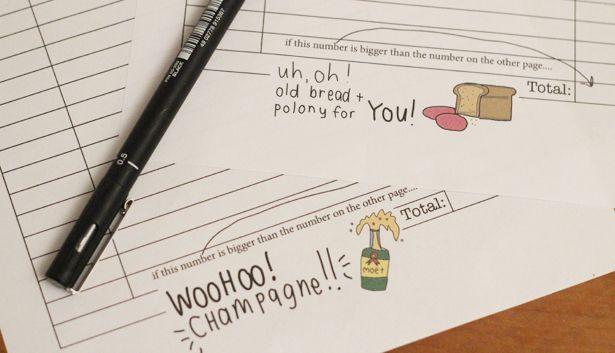 if this number is bigger than the number on the other page....
uh, oh!
old bread +
polony for YOU!
Total:
0.5
if this number is bigger than the number on the other page....
Total:
WOOHOO!
CHAMPAGNE!!
moët